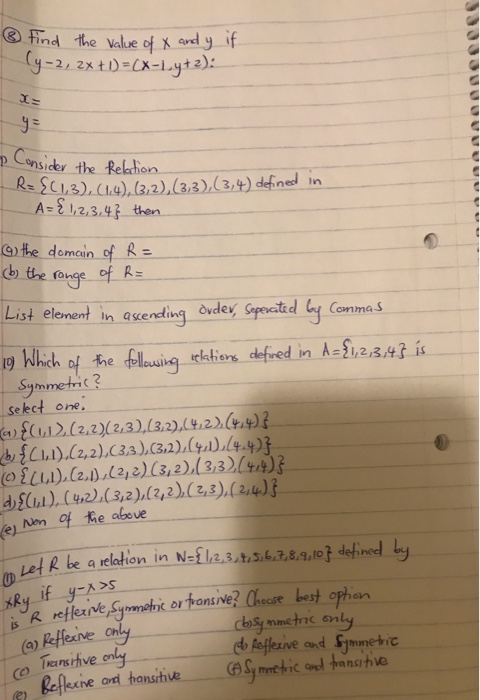 ⑧ Find the value of x and y if
(y-2, 2x+1)=(x-1,y+2):
x=
y=
Consider the Relation
R= {(1,3),(1,4),(3,2),(3,3),(3,4) defined in
A={1,2,3,4} then
(a) the domain of R =
(b) the range of R=
List element in ascending order, seperated by Commas
10) Which of the following relations defined in A={1,2,3,4} is
Symmetric?
select one:
(a) {(1,1),(2,2)(2,3),(3,2),(4,2),(4,4)}
(b) {(1,1),(2,2),(3,3),(3,2),(4,1),(4,4)}
(c) {(1,1),(2,1),(2,2)(3,2),(3,3),(4,4)}
d) {(1,1),(4,2),(3,2),(2,2),(2,3),(2,4)}
(e) Non of the above
⑪ Let R be a relation in N={1,2,3,4,5,6,7,8,9,10} defined by
xRy if y-x>5
is R reflexive, Symmetric or transive? Choose best option
(a) Reflexive only (b) Symmetric only
(c) Transitive only (d) Reflexive and Symmetric
(e) Reflexive and transitive (f) Symmetric and transitive